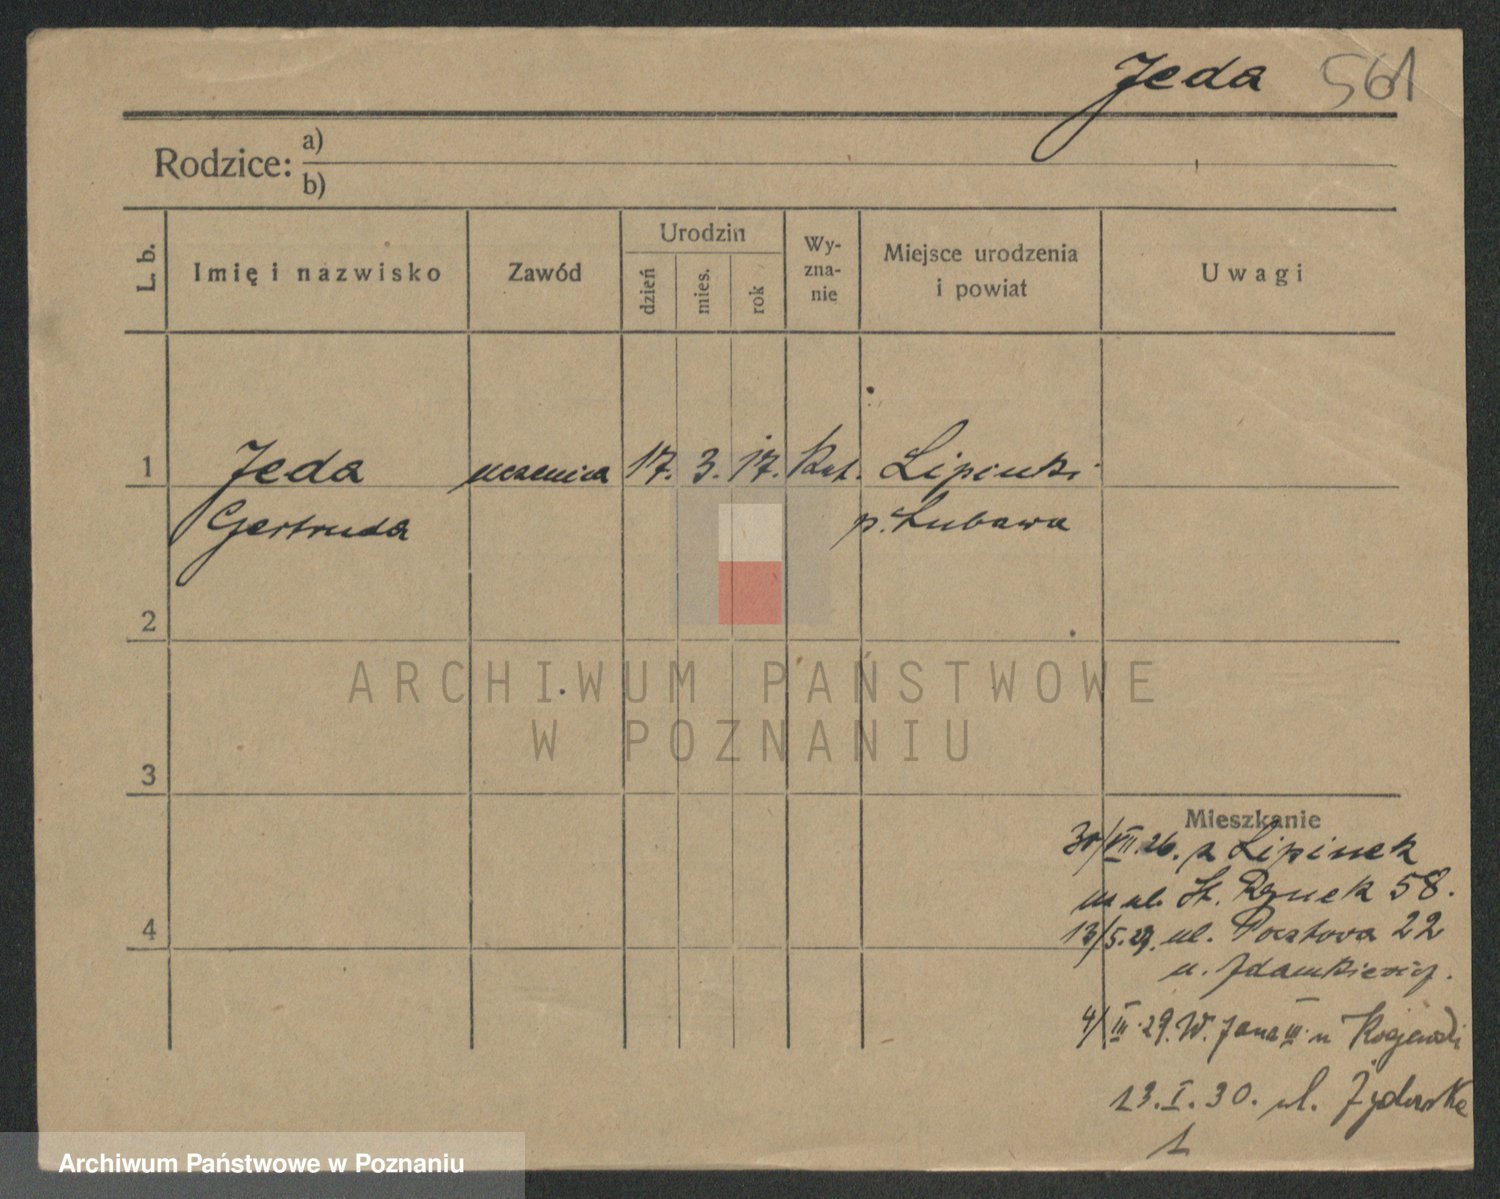 Jeda 561
Rodzice: a)
b)
L. b.
Imię i nazwisko
Zawód
Urodzin
dzień
mies.
rok
Wy-
zna-
nie
Miejsce urodzenia
i powiat
Uwagi
1 Jeda uczenica 17. 3. 17. Kat. Lipinki
Gertruda p. Lubawa
2
ARCHIWUM PAŃSTWOWE
W POZNANIU
3
Mieszkanie
30/VII.26. z Lipinek
na ul. St. Rynek 58.
4
13/5.29. ul. Pocztowa 22
4/III.29. W. Jana III
13.I.30. ul. Żydowska
1
Archiwum Państwowe w Poznaniu